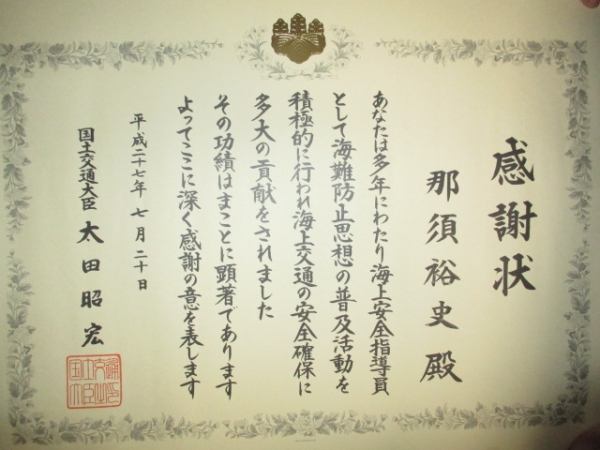 感謝状
那須裕史殿
あなたは多年にわたり海上安全指導員
として海難防止思想の普及活動を
積極的に行われ海上交通の安全確保に
多大の貢献をされました
その功績はまことに顕著であります
よってここに深く感謝の意を表します
平成二十七年七月二十日
国土交通大臣 太田昭宏